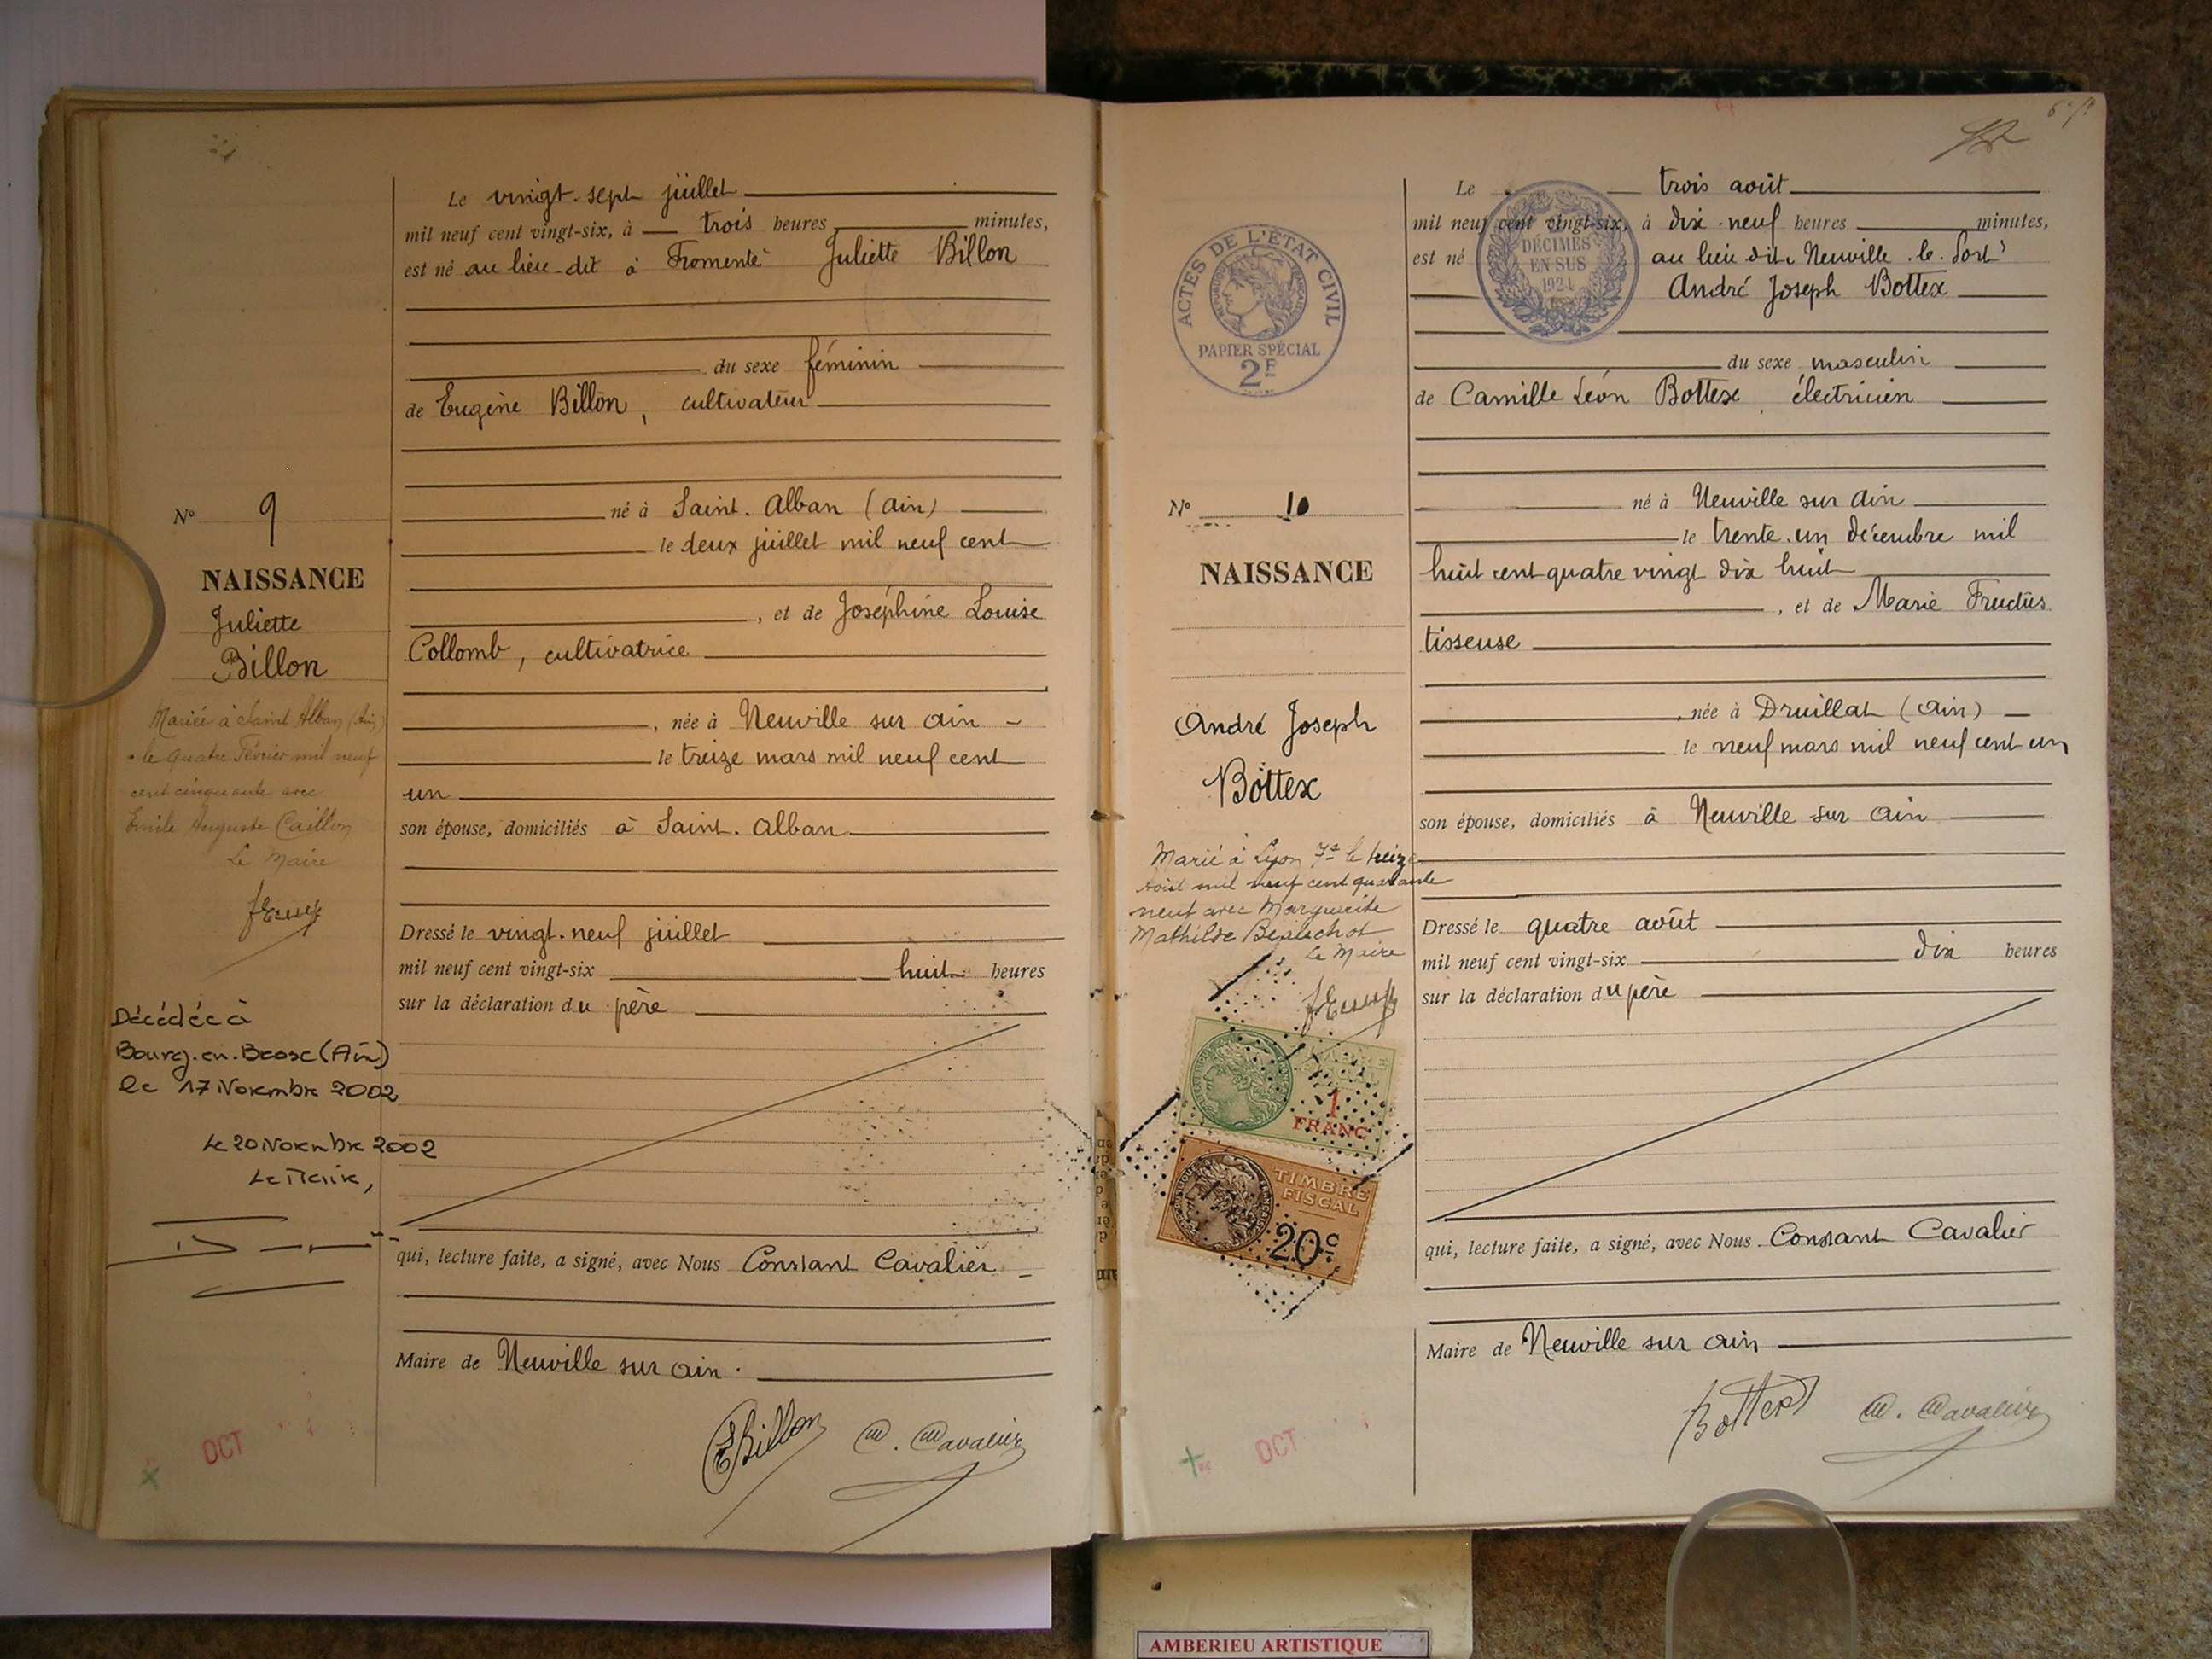 Le vingt-sept juillet
mil neuf cent vingt-six, à trois heures minutes,
est né au lieu-dit à Fromente Juliette Billon
du sexe féminin
de Eugène Billon, cultivateur
né à Saint-Alban (Ain)
le deux juillet mil neuf cent
, et de Joséphine Louise
Collomb, cultivatrice
, née à Neuville sur Ain
le treize mars mil neuf cent
un
son épouse, domiciliés à Saint-Alban
Dressé le vingt-neuf juillet
mil neuf cent vingt-six huit heures
sur la déclaration du père
qui, lecture faite, a signé, avec Nous Constant Cavalier
Maire de Neuville sur Ain.
EBillon C. Cavalier
N° 9
NAISSANCE
Juliette
Billon
Mariée à Saint Alban (Ain)
le quatre Février mil neuf
cent cinquante avec
Emile Auguste Caillon
Le Maire
Décédée à
Bourg-en-Bresse (Ain)
le 17 Novembre 2002
Le 20 Novembre 2002
Le Maire,
OCT
Le trois août
mil neuf cent vingt-six, à dix-neuf heures minutes,
est né au lieu dit Neuville-le-
André Joseph Bottex
du sexe masculin
de Camille Léon Bottex, électricien
né à Neuville sur Ain
le trente-un décembre mil
huit cent quatre vingt dix huit
, et de Marie Fructus
tisseuse
, née à Druillat (Ain)
le neuf mars mil neuf cent un
son épouse, domiciliés à Neuville sur Ain
Dressé le quatre août
mil neuf cent vingt-six dix heures
sur la déclaration du père
qui, lecture faite, a signé, avec Nous Constant Cavalier
Maire de Neuville sur Ain
Bottex C. Cavalier
ACTES DE L'ÉTAT CIVIL
PAPIER SPÉCIAL
2F
DÉCIMES
EN SUS
1924
N° 10
NAISSANCE
André Joseph
Bottex
Marié à Lyon 7e le treize
août mil neuf cent quarante
neuf avec Marguerite
Mathilde
Le Maire
TIMBRE
FISCAL
1
FRANC
TIMBRE
FISCAL
20c
OCT
AMBERIEU ARTISTIQUE